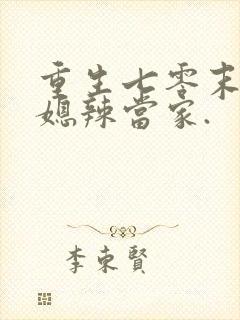 重生七零末
媳辣當家.
李東賢